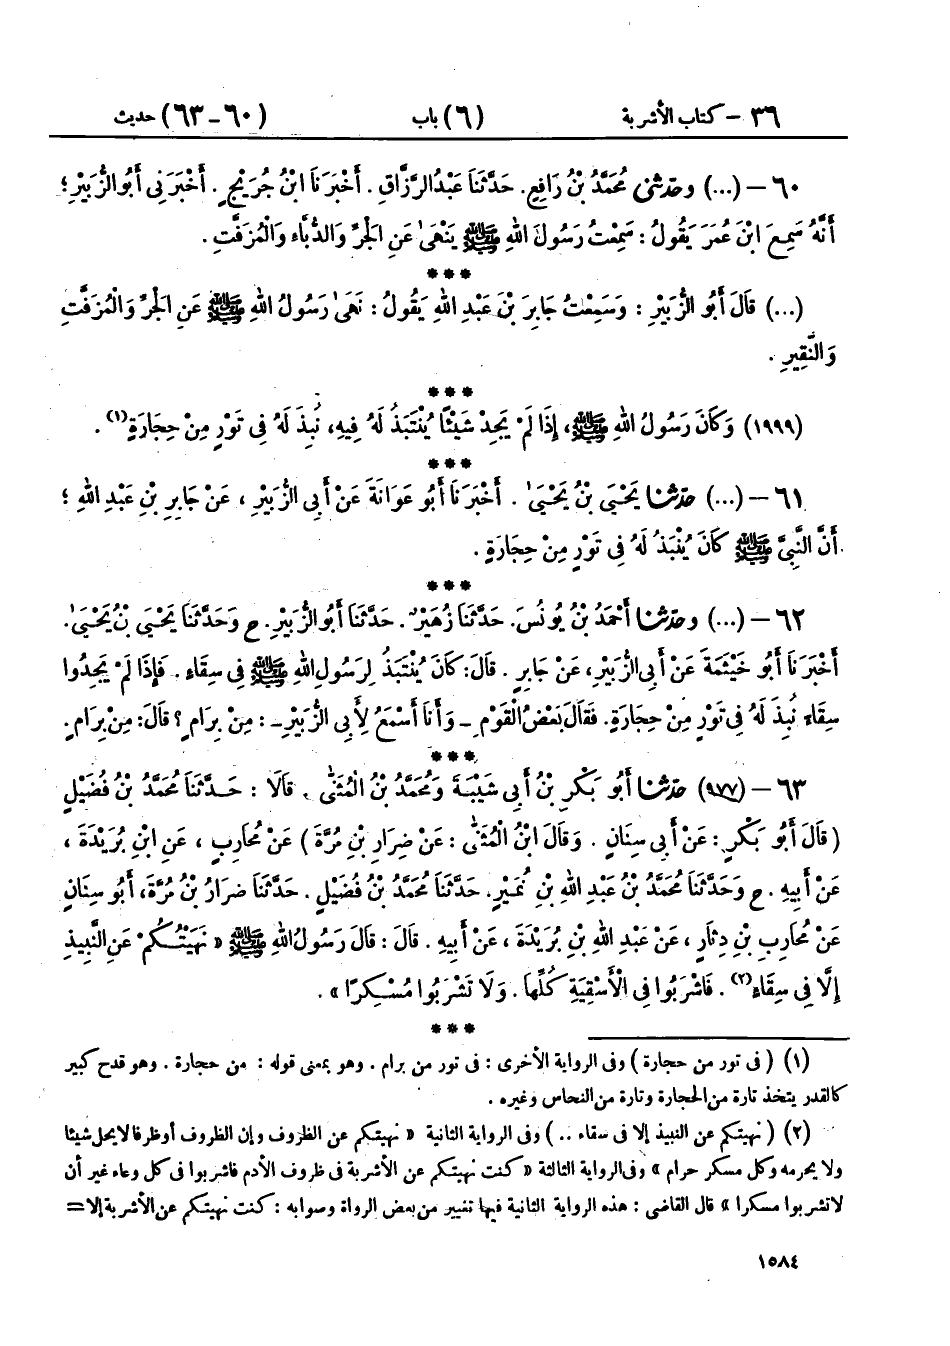 ٣٦ – كتاب الأشربة (٦) باب (٦٠ – ٦٣) حديث
٦٠ – (...) وحدثنى مُحَمَّدُ بْنُ رَافِعٍ. حَدَّثَنَا عَبْدُ الرَّزَّاقِ. أَخْبَرَنَا ابْنُ جُرَيْجٍ. أَخْبَرَنِى أَبُو الزُّبَيْرِ؛
أَنَّهُ سَمِعَ ابْنَ عُمَرَ يَقُولُ: سَمِعْتُ رَسُولَ اللهِ ﷺ يَنْهَىٰ عَنِ الْجَرِّ وَالدُّبَّاءِ وَالْمُزَفَّتِ.
***
(...) قَالَ أَبُو الزُّبَيْرِ: وَسَمِعْتُ جَابِرَ بْنَ عَبْدِ اللهِ يَقُولُ: نَهَىٰ رَسُولُ اللهِ ﷺ عَنِ الْجَرِّ وَالْمُزَفَّتِ
وَالنَّقِيرِ.
***
(١٩٩٩) وَكَانَ رَسُولُ اللهِ ﷺ، إِذَا لَمْ يَجِدْ شَيْئًا يُنْتَبَذُ لَهُ فِيهِ، نُبِذَ لَهُ فِى تَوْرٍ مِنْ حِجَارَةٍ(١).
***
٦١ – (...) حدثنا يَحْيَىٰ بْنُ يَحْيَىٰ. أَخْبَرَنَا أَبُو عَوَانَةَ عَنْ أَبِى الزُّبَيْرِ، عَنْ جَابِرِ بْنِ عَبْدِ اللهِ؛
أَنَّ النَّبِىَّ ﷺ كَانَ يُنْبَذُ لَهُ فِى تَوْرٍ مِنْ حِجَارَةٍ.
***
٦٢ – (...) وحدثنا أَحْمَدُ بْنُ يُونُسَ. حَدَّثَنَا زُهَيْرٌ. حَدَّثَنَا أَبُو الزُّبَيْرِ. ح وَحَدَّثَنَا يَحْيَىٰ بْنُ يَحْيَىٰ.
أَخْبَرَنَا أَبُو خَيْثَمَةَ عَنْ أَبِى الزُّبَيْرِ، عَنْ جَابِرٍ. قَالَ: كَانَ يُنْتَبَذُ لِرَسُولِ اللهِ ﷺ فِى سِقَاءٍ. فَإِذَا لَمْ يَجِدُوا
سِقَاءً نُبِذَ لَهُ فِى تَوْرٍ مِنْ حِجَارَةٍ. فَقَالَ بَعْضُ الْقَوْمِ – وَأَنَا أَسْمَعُ لِأَبِى الزُّبَيْرِ –: مِنْ بِرَامٍ؟ قَالَ: مِنْ بِرَامٍ.
***
٦٣ – (٩٧٧) حدثنا أَبُو بَكْرِ بْنُ أَبِى شَيْبَةَ وَمُحَمَّدُ بْنُ الْمُثَنَّىٰ. قَالَا: حَدَّثَنَا مُحَمَّدُ بْنُ فُضَيْلٍ
(قَالَ أَبُو بَكْرٍ: عَنْ أَبِى سِنَانٍ. وَقَالَ ابْنُ الْمُثَنَّىٰ: عَنْ ضِرَارِ بْنِ مُرَّةَ) عَنْ مُحَارِبٍ، عَنِ ابْنِ بُرَيْدَةَ،
عَنْ أَبِيهِ. ح وَحَدَّثَنَا مُحَمَّدُ بْنُ عَبْدِ اللهِ بْنِ نُمَيْرٍ. حَدَّثَنَا مُحَمَّدُ بْنُ فُضَيْلٍ. حَدَّثَنَا ضِرَارُ بْنُ مُرَّةَ، أَبُو سِنَانٍ
عَنْ مُحَارِبِ بْنِ دِثَارٍ، عَنْ عَبْدِ اللهِ بْنِ بُرَيْدَةَ، عَنْ أَبِيهِ. قَالَ: قَالَ رَسُولُ اللهِ ﷺ « نَهَيْتُكُمْ عَنِ النَّبِيذِ
إِلَّا فِى سِقَاءٍ(٢). فَاشْرَبُوا فِى الْأَسْقِيَةِ كُلِّهَا. وَلَا تَشْرَبُوا مُسْكِرًا ».
***
(١) (فى تور من حجارة) وفى الرواية الأخرى: فى تور من برام. وهو بمعنى قوله: من حجارة. وهو قدح كبير
كالقدر يتخذ تارة من الحجارة وتارة من النحاس وغيره.
(٢) (نهيتكم عن النبيذ إلا فى سقاء ..) وفى الرواية الثانية « نهيتكم عن الظروف وإن الظروف أو ظرفا لا يحل شيئا
ولا يحرمه وكل مسكر حرام » وفى الرواية الثالثة « كنت نهيتكم عن الأشربة فى ظروف الأدم فاشربوا فى كل وعاء غير أن
لا تشربوا مسكرا » قال القاضى: هذه الرواية الثانية فيها تغيير من بعض الرواة وصوابه: كنت نهيتكم عن الأشربة إلا =
١٥٨٤